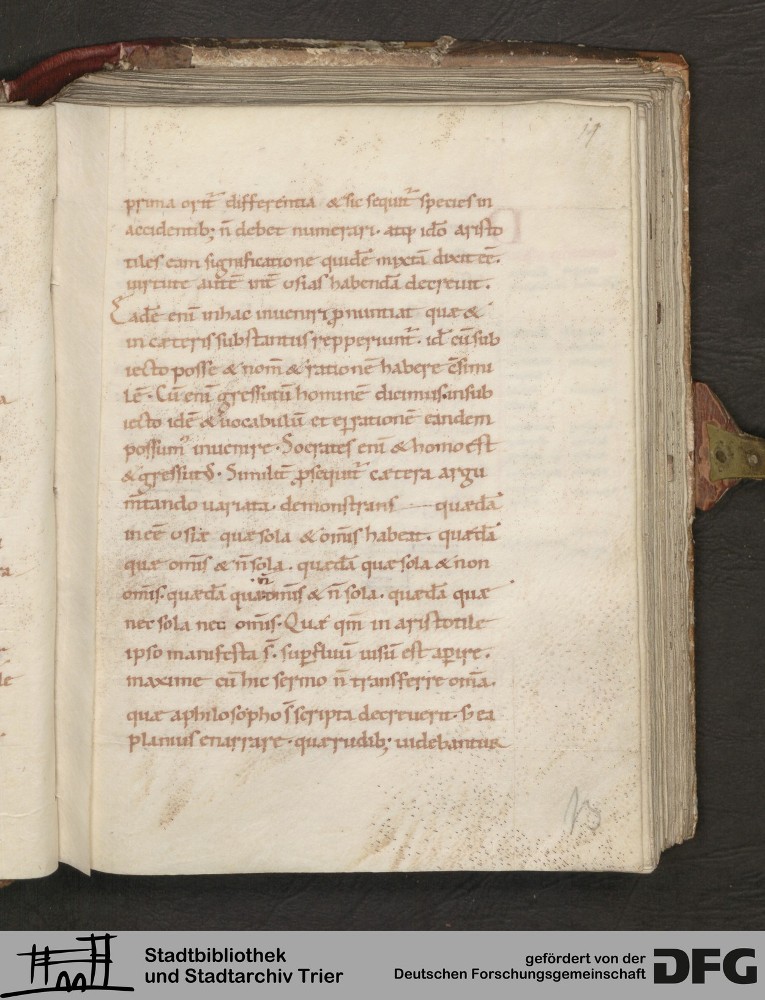 19
prima orit̄ differentia & sic sequit̄ species in
accidentib; n̄ debet numerari. atq; idō aristo
tiles eam significatione quidē mixtā dixit eē.
uirtute autē int̄ usias habendā decreuit.
Eadē enī inhac inueniri ꝓnuntiat quæ &
in cæteris substantiis repperiunt̄. id ē cū sub
iecto posse & nom̄ & rationē habere c̄simi
lē. Cū enī gressiuū hominē dicimus. insub
iecto idē & uocabulū et eī rationē eandem
possum; inuenire. Socrates enī & homo est
& gressiuus. Similit̄ ꝓsequit̄ cætera argu
m̄tando uariata. demonstrans quædā
in eē usiæ quæ sola & om̄is habeat. quædā
quæ om̄is & n̄ sola. quædā quæ sola & non
om̄is. quædā quæ n̄ om̄is & n̄ sola. quædā quæ
nec sola nec om̄is. Quæ qm̄ in aristotile
ipso manifesta s̄. suꝑfluū uisū est aperire.
maxime cū hic sermo n̄ transferre om̄a.
quæ aphilosopho s̄ scripta decreuerit. s; ea
planius enarrare. quæ rudib; uidebantur
Stadtbibliothek
und Stadtarchiv Trier
gefördert von der
Deutschen Forschungsgemeinschaft
DFG